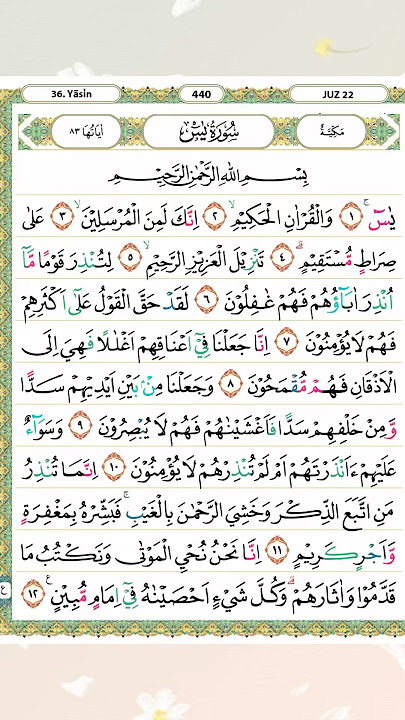 36. Yāsin
440
JUZ 22
اٰيَاتُهَا ٨٣
سُوْرَةُ يٰسۤ
مَكِّيَّةٌ
بِسْمِ اللّٰهِ الرَّحْمٰنِ الرَّحِيْمِ
يٰسۤ ۚ ١ وَالْقُرْاٰنِ الْحَكِيْمِۙ ٢ اِنَّكَ لَمِنَ الْمُرْسَلِيْنَۙ ٣ عَلٰى
صِرَاطٍ مُّسْتَقِيْمٍۗ ٤ تَنْزِيْلَ الْعَزِيْزِ الرَّحِيْمِۙ ٥ لِتُنْذِرَ قَوْمًا مَّآ
اُنْذِرَ اٰبَاۤؤُهُمْ فَهُمْ غٰفِلُوْنَ ٦ لَقَدْ حَقَّ الْقَوْلُ عَلٰٓى اَكْثَرِهِمْ
فَهُمْ لَا يُؤْمِنُوْنَ ٧ اِنَّا جَعَلْنَا فِيْٓ اَعْنَاقِهِمْ اَغْلٰلًا فَهِيَ اِلَى
الْاَذْقَانِ فَهُمْ مُّقْمَحُوْنَ ٨ وَجَعَلْنَا مِنْۢ بَيْنِ اَيْدِيْهِمْ سَدًّا
وَّمِنْ خَلْفِهِمْ سَدًّا فَاَغْشَيْنٰهُمْ فَهُمْ لَا يُبْصِرُوْنَ ٩ وَسَوَاۤءٌ
عَلَيْهِمْ ءَاَنْذَرْتَهُمْ اَمْ لَمْ تُنْذِرْهُمْ لَا يُؤْمِنُوْنَ ١٠ اِنَّمَا تُنْذِرُ
مَنِ اتَّبَعَ الذِّكْرَ وَخَشِيَ الرَّحْمٰنَ بِالْغَيْبِۚ فَبَشِّرْهُ بِمَغْفِرَةٍ
وَّاَجْرٍ كَرِيْمٍ ١١ اِنَّا نَحْنُ نُحْيِ الْمَوْتٰى وَنَكْتُبُ مَا
قَدَّمُوْا وَاٰثَارَهُمْۗ وَكُلَّ شَيْءٍ اَحْصَيْنٰهُ فِيْٓ اِمَامٍ مُّبِيْنٍ ࣖ ١٢
ع